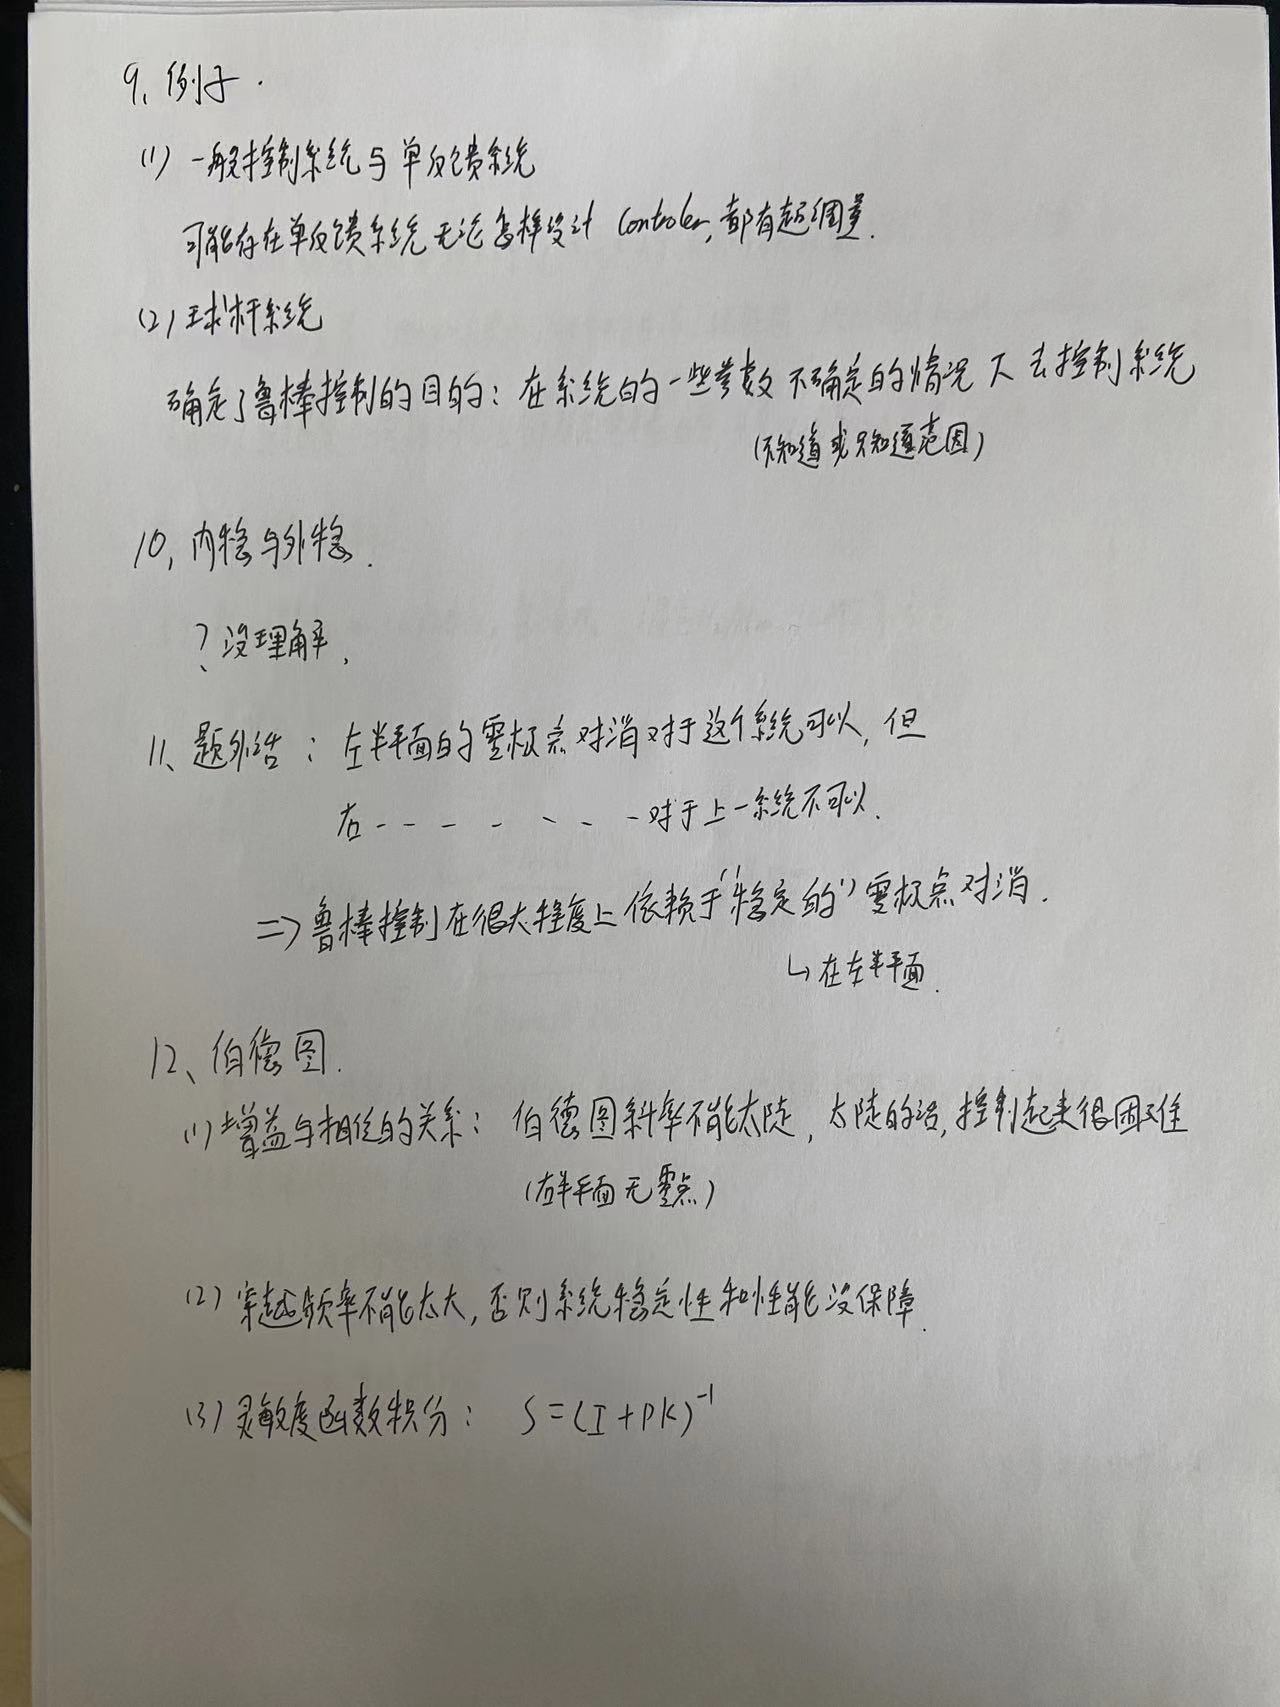 9、例子.
(1) 一般控制系统与单反馈系统
可能存在单反馈系统无论怎样设计 Controler, 都有超调量.
(2) 球杆系统
确定了鲁棒控制的目的: 在系统的一些参数不确定的情况下去控制系统
(不知道或只知道范围)
10、内稳与外稳.
? 没理解.
11、题外话: 左半平面的零极点对消对于这个系统可以, 但
右 - - - - - - - 对于上一系统不可以.
=> 鲁棒控制在很大程度上依赖于"稳定的"零极点对消.
↳ 在左半平面.
12、伯德图.
(1) 增益与相位的关系: 伯德图斜率不能太陡, 太陡的话, 控制起来很困难
(右半平面无零点)
(2) 穿越频率不能太大, 否则系统稳定性和性能没保障.
(3) 灵敏度函数积分: S=(I+PK)⁻¹